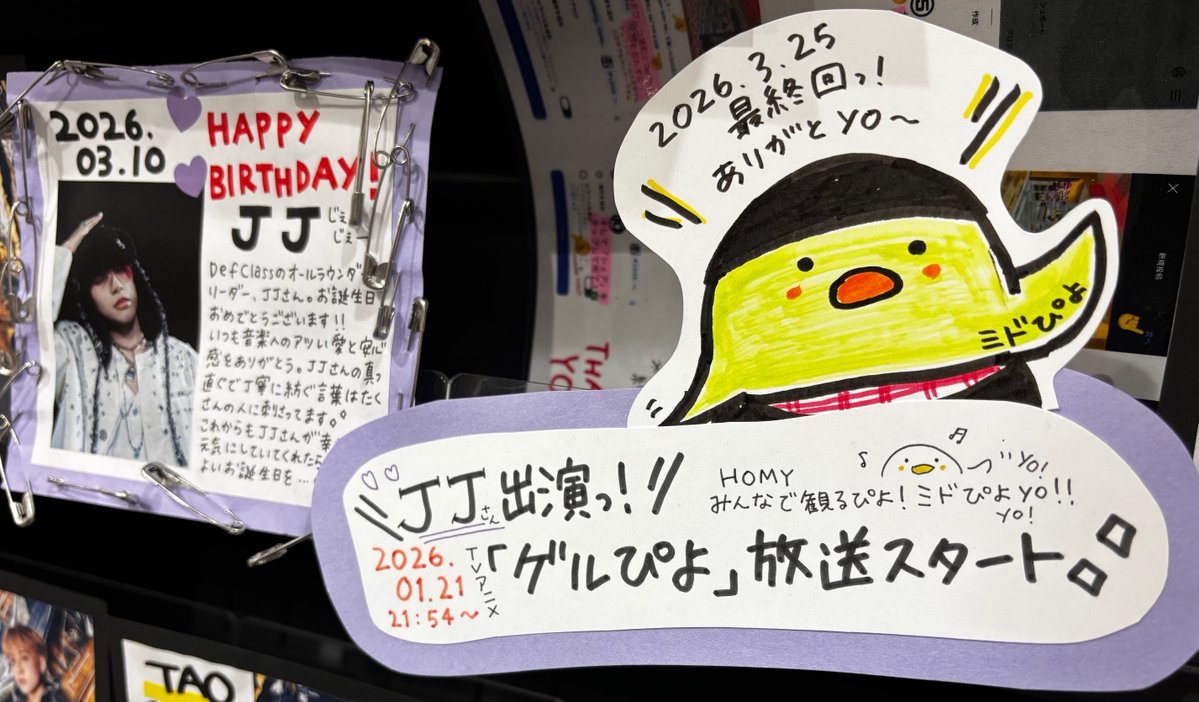 2026.
03.10
HAPPY
BIRTHDAY!
JJ
じぇー
じぇー
DefClassのオールラウンダー
リーダー、JJさん。お誕生日
おめでとうございます!!
いつも音楽へのアツい愛と安心
感をありがとう。JJさんの真っ
直ぐで丁寧に紡ぐ言葉はたく
さんの人に刺さってます。
これからもJJさんが幸
元気にしていてくれたら
よいお誕生日を…
2026.3.25
最終回っ!
ありがとYO〜
ミドぴよ
JJさん出演っ!
HOMY
みんなで観るぴよ!ミドぴよYO!!
YO!
YO!
2026.
01.21
21:54〜
TVアニメ
「ゲルぴよ」放送スタート
TAO